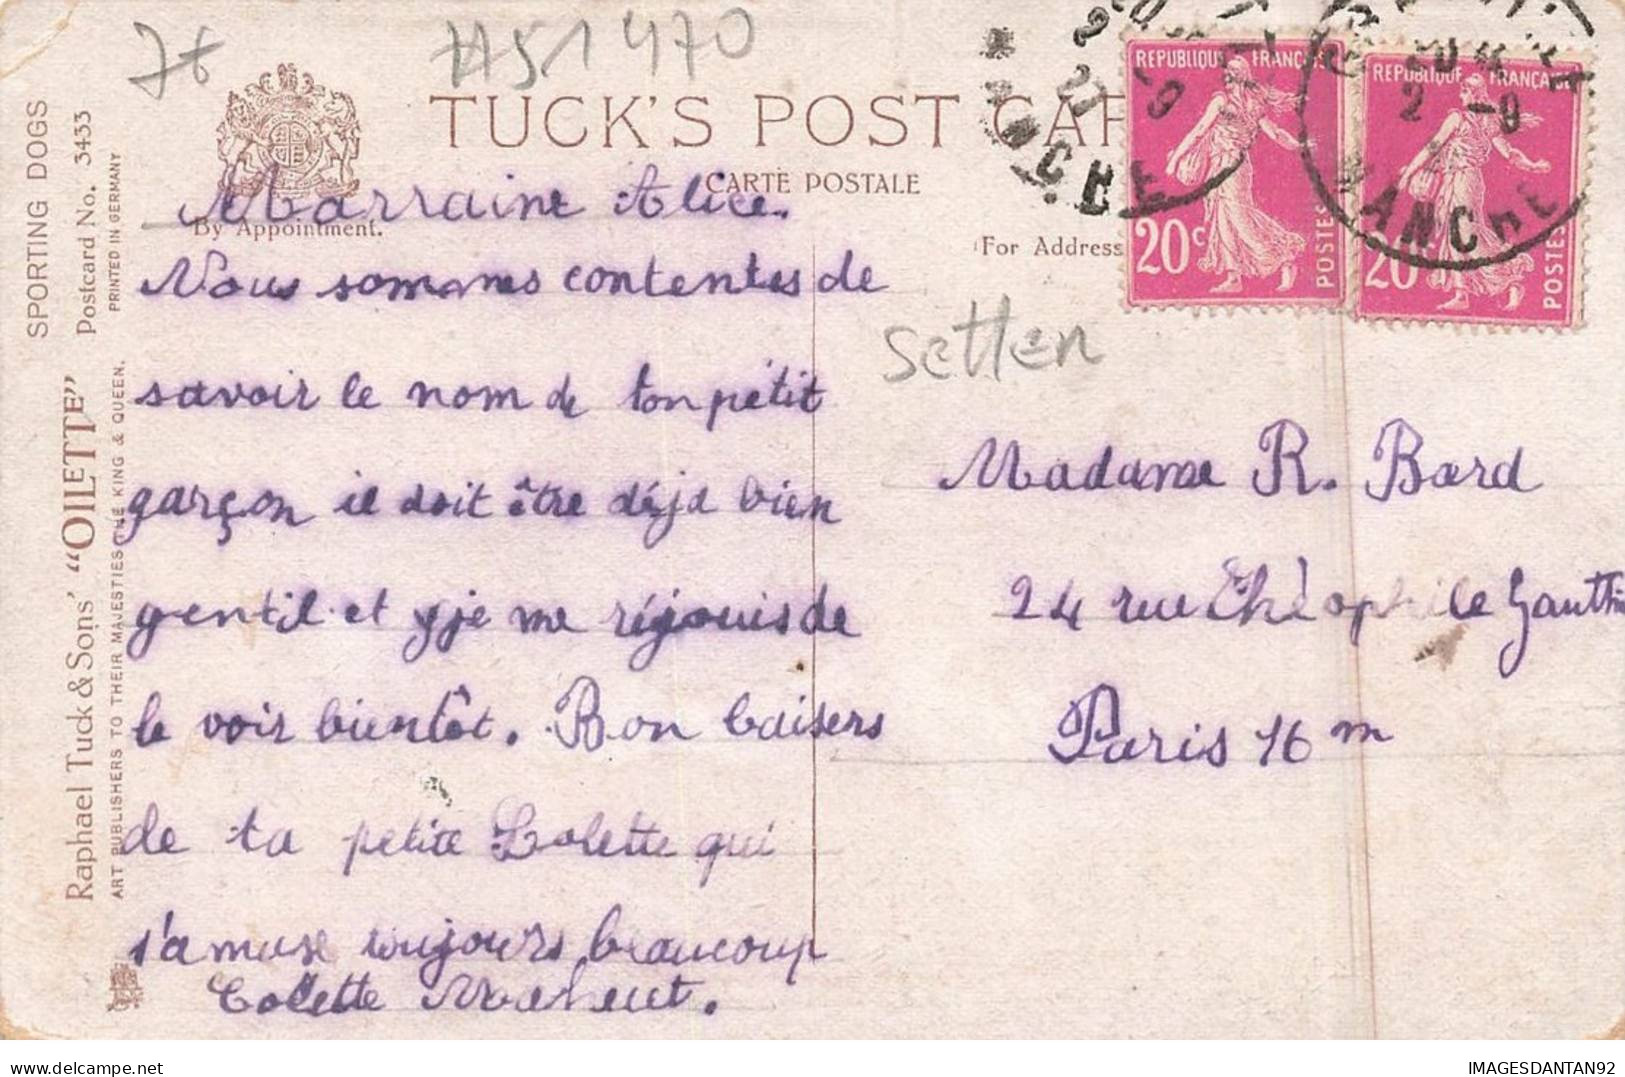 7t
#51470
TUCK'S POST CAR
CARTE POSTALE
By Appointment.
For Address
SPORTING DOGS
Postcard No. 3433
PRINTED IN GERMANY
Raphael Tuck & Sons' "OILETTE"
ART PUBLISHERS TO THEIR MAJESTIES THE KING & QUEEN.
REPUBLIQUE FRANÇAISE
20c
POSTES
REPUBLIQUE FRANÇAISE
20c
POSTES
MANCHE
2 -9
MANCHE
Marraine Alice.
Nous sommes contentes de
savoir le nom de ton petit
garçon il doit être déjà bien
gentil et je me réjouis de
le voir bientôt. Bon baisers
de ta petite Lolette qui
s'amuse toujours beaucoup
Colette Maheut.
setten
Madame R. Bard
24 rue Théophile Gauthi
Paris 16 m
IMAGESDANTAN92
delcampe.net